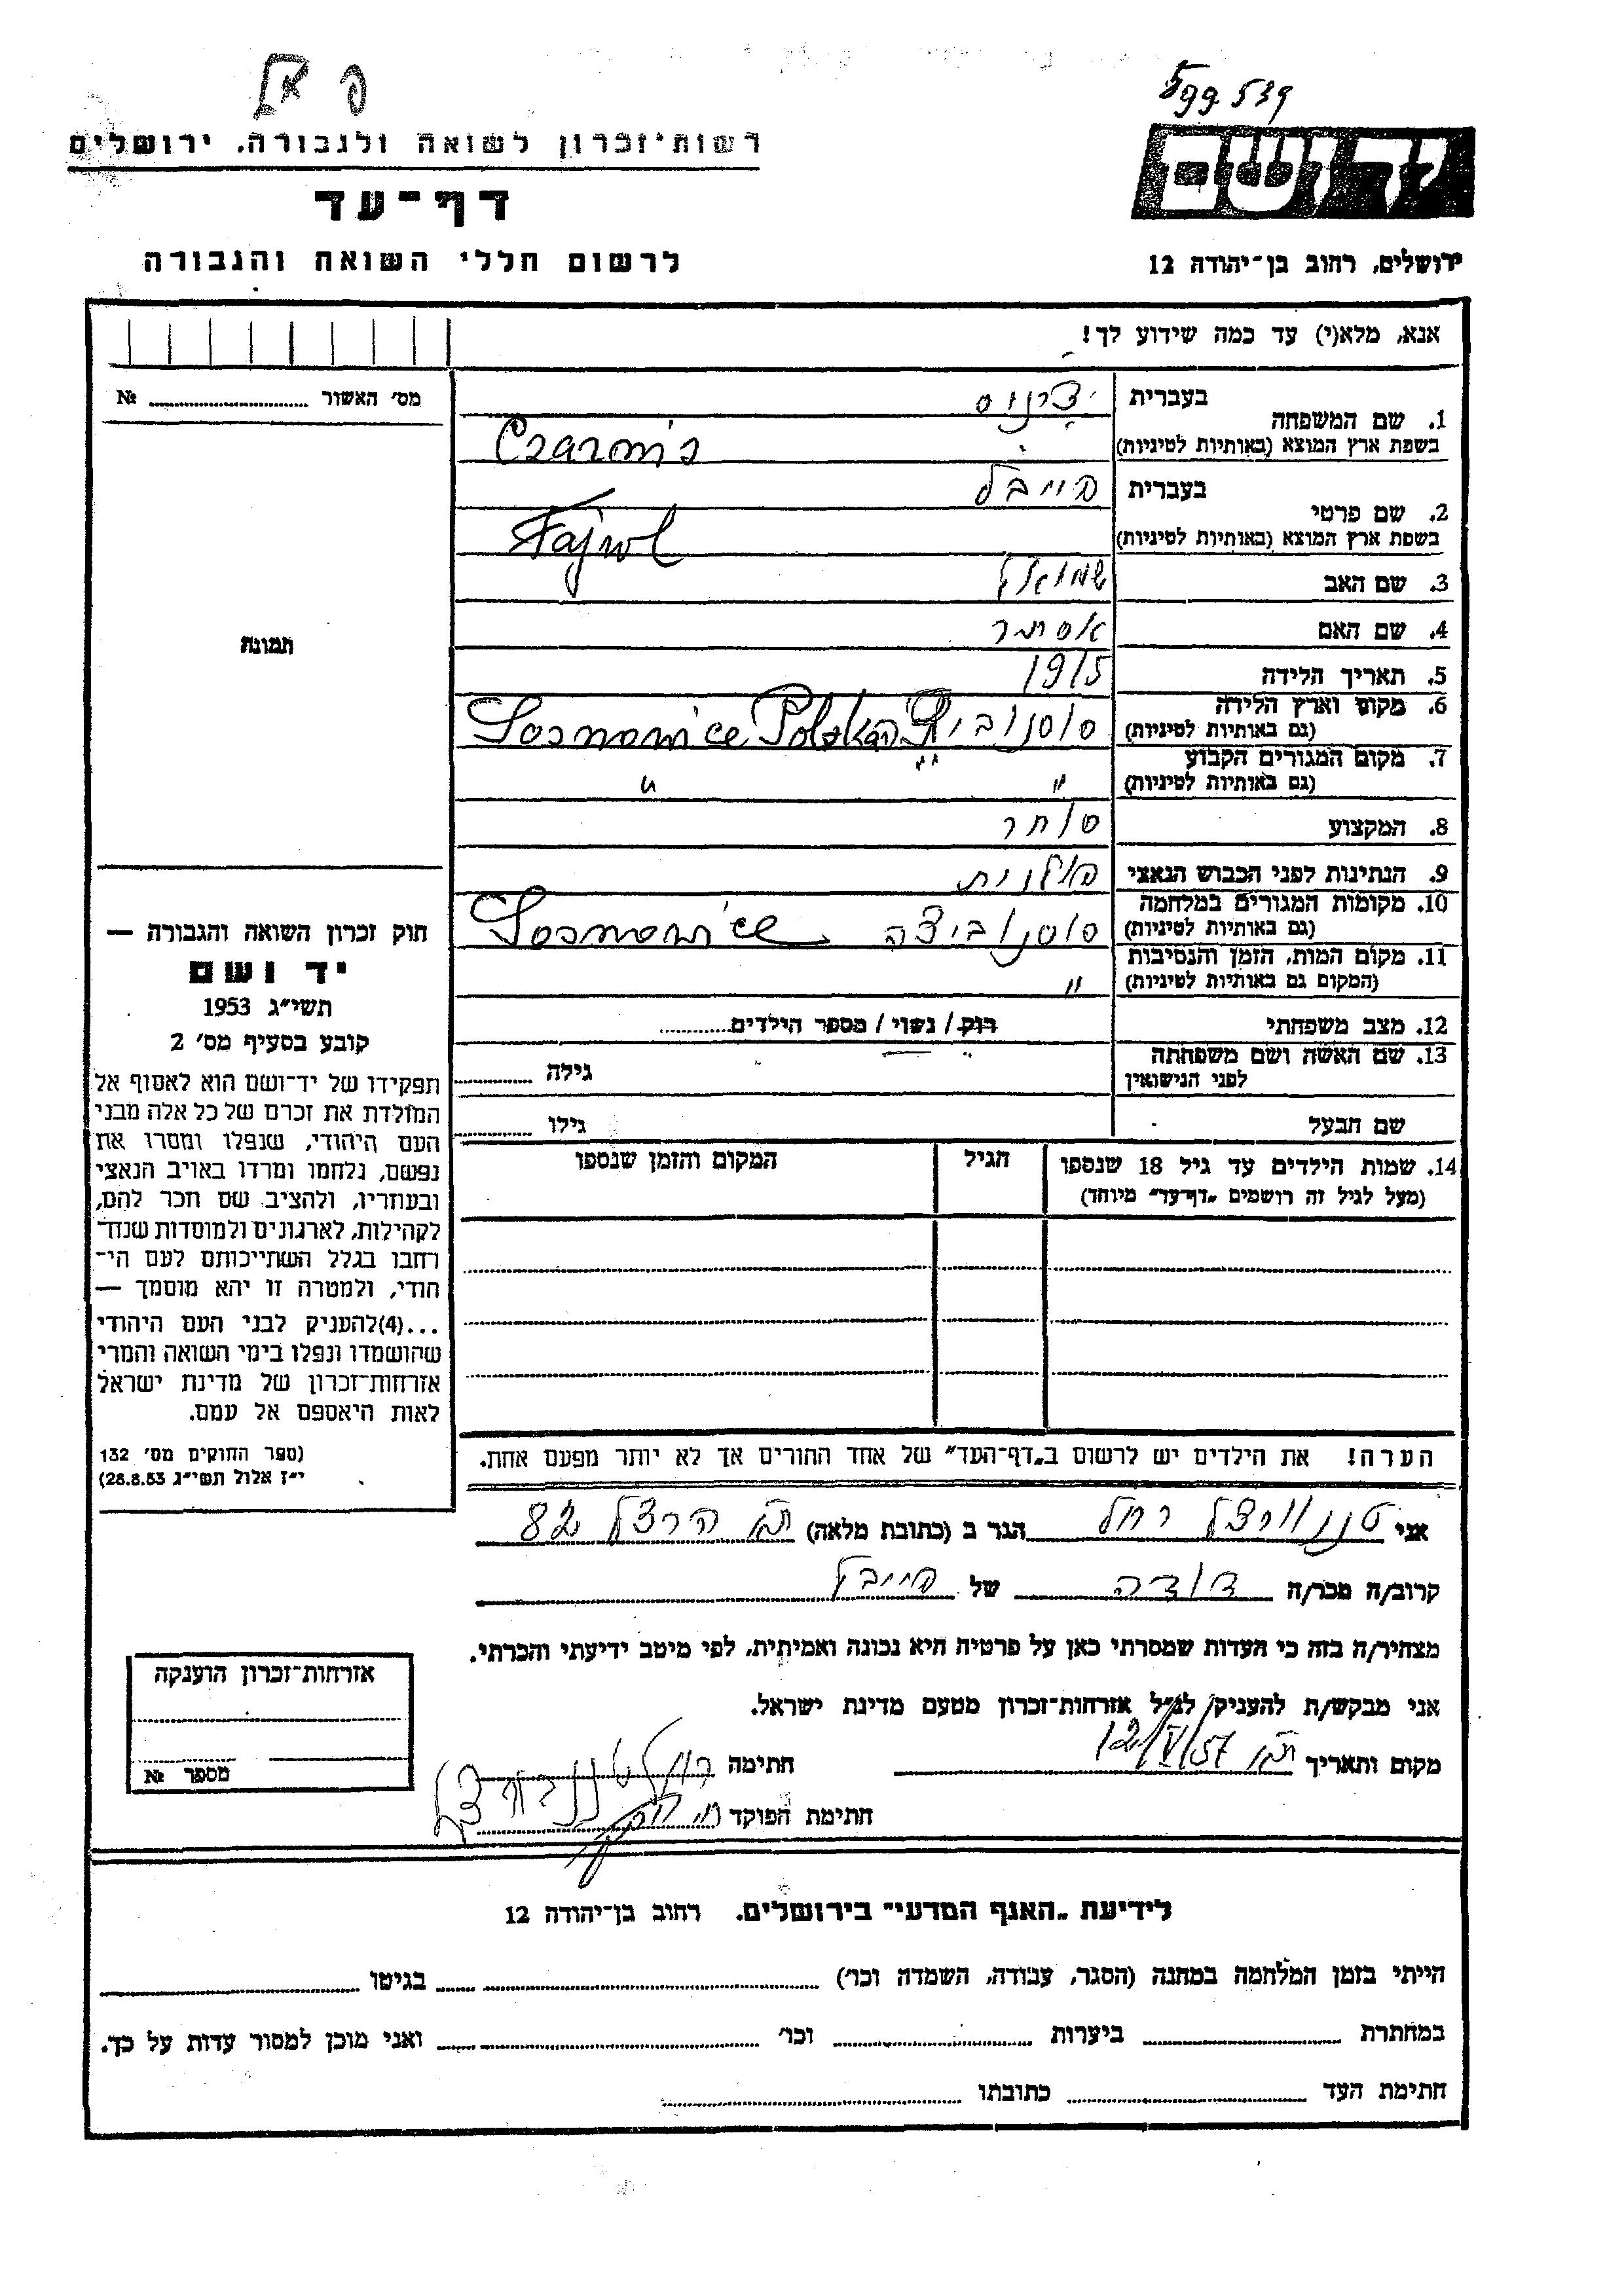 599539
רשות־זכרון לשואה ולגבורה, ירושלים
דף־עד
לרשום חללי השואה והגבורה
יד ושם
ירושלים, רחוב בן־יהודה 12
אנא, מלא(י) עד כמה שידוע לך!
מס' האשור № 
1. שם המשפחה בעברית
בשפת ארץ המוצא (באותיות לטיניות) Czarnis
2. שם פרטי בעברית פייבל
בשפת ארץ המוצא (באותיות לטיניות) Fajwl
3. שם האב שמואל
4. שם האם אסתר
5. תאריך הלידה 1915
6. מקום וארץ הלידה
(גם באותיות לטיניות) Sosnowice Polska
7. מקום המגורים הקבוע
(גם באותיות לטיניות) " "
8. המקצוע סוחר
9. הנתינות לפני הכבוש הנאצי פולנית
10. מקומות המגורים במלחמה
(גם באותיות לטיניות) סוסנוביצה Sosnowice
11. מקום המות, הזמן והנסיבות
(המקום גם באותיות לטיניות) "
12. מצב משפחתי רוק / נשוי / מספר הילדים
13. שם האשה ושם משפחתה
לפני הנישואין גילה
שם הבעל גילו
14. שמות הילדים עד גיל 18 שנספו הגיל המקום והזמן שנספו
(מעל לגיל זה רושמים „דף־עד" מיוחד)
הערה! את הילדים יש לרשום ב„דף־העד" של אחד ההורים אך לא יותר מפעם אחת.
תמונה
חוק זכרון השואה והגבורה —
יד ושם
תשי"ג 1953
קובע בסעיף מס' 2
תפקידו של יד־ושם הוא לאסוף אל
המולדת את זכרם של כל אלה מבני
העם היהודי, שנפלו ומסרו את
נפשם, נלחמו ומרדו באויב הנאצי
ובעוזריו, ולהציב שם וזכר להם,
לקהילות, לארגונים ולמוסדות שנח־
רבו בגלל השתייכותם לעם הי־
הודי, ולמטרה זו יהא מוסמך —
...(4)להעניק לבני העם היהודי
שהושמדו ונפלו בימי השואה והמרי
אזרחות־זכרון של מדינת ישראל
לאות היאספם אל עמם.
(ספר החוקים מס' 132
י"ז אלול תשי"ג 28.8.53)
אני טננוורצל רחל הגר ב (כתובת מלאה) ת"א הרצל 82
קרוב/ה מכר/ה דודה של פייבל
מצהיר/ה בזה כי העדות שמסרתי כאן על פרטיה היא נכונה ואמיתית, לפי מיטב ידיעתי והכרתי.
אני מבקש/ת להעניק לנ"ל אזרחות־זכרון מטעם מדינת ישראל.
מקום ותאריך ת"א 12/V/57 חתימה
חתימת הפוקד
אזרחות־זכרון הוענקה
מספר №
לידיעת „האגף המדעי" בירושלים, רחוב בן־יהודה 12
הייתי בזמן המלחמה במחנה (הסגר, עבודה, השמדה וכו') בגיטו
במחתרת ביערות וכו' ואני מוכן למסור עדות על כך.
חתימת העד כתובתו